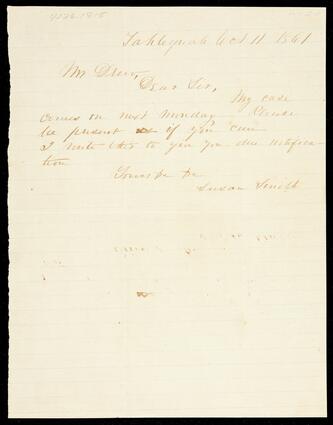 4026.1815
Tahlequah Oct 11 1861
Mr
Dear Sir,
My case
comes on next Monday Please
be present if you can
I write this to you for due notifica-
tion
Yours &c
Susan Smith